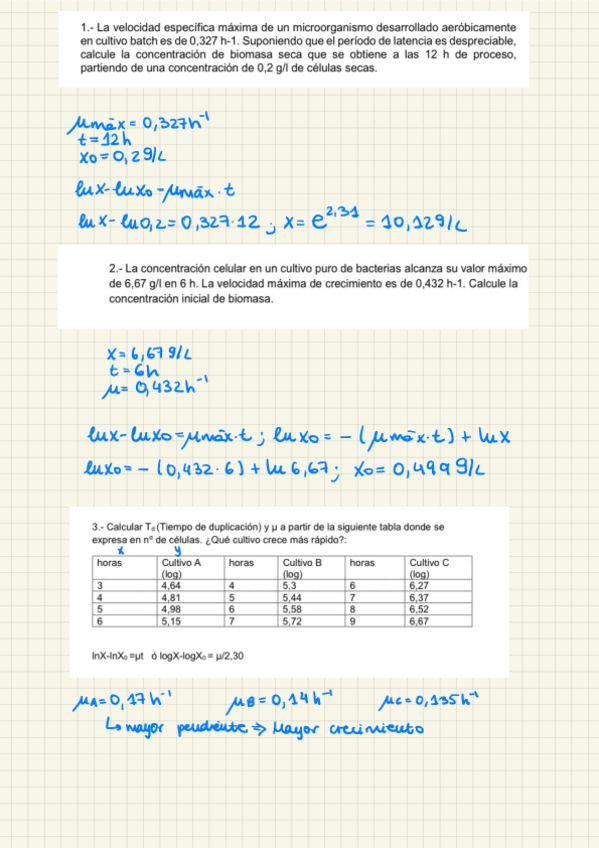 1.- La velocidad específica máxima de un microorganismo desarrollado aeróbicamente
en cultivo batch es de 0,327 h-1. Suponiendo que el período de latencia es despreciable,
calcule la concentración de biomasa seca que se obtiene a las 12 h de proceso,
partiendo de una concentración de 0,2 g/l de células secas.
μmáx = 0,327h⁻¹
t = 12h
X₀ = 0,2g/L
lnX-lnX₀=μmáx·t
lnX-ln0,2=0,327·12 ; X= e^2,31 = 10,12g/L
2.- La concentración celular en un cultivo puro de bacterias alcanza su valor máximo
de 6,67 g/l en 6 h. La velocidad máxima de crecimiento es de 0,432 h-1. Calcule la
concentración inicial de biomasa.
X = 6,67g/L
t = 6h
μ = 0,432h⁻¹
lnX-lnX₀=μmáx·t ; lnX₀ = -(μmáx·t) + lnX
lnX₀= -(0,432·6)+ln6,67; X₀= 0,499g/L
3.- Calcular Td (Tiempo de duplicación) y μ a partir de la siguiente tabla donde se
expresa en nº de células. ¿Qué cultivo crece más rápido?:
x y
horas Cultivo A (log) horas Cultivo B (log) horas Cultivo C (log)
3 4,64 4 5,3 6 6,27
4 4,81 5 5,44 7 6,37
5 4,98 6 5,58 8 6,52
6 5,15 7 5,72 9 6,67
lnX-lnX₀ =μt ó logX-logX₀ = μ/2,30
μA=0,17h⁻¹ μB=0,14h⁻¹ μC=0,135h⁻¹
↳ mayor pendiente ⇒ Mayor crecimiento